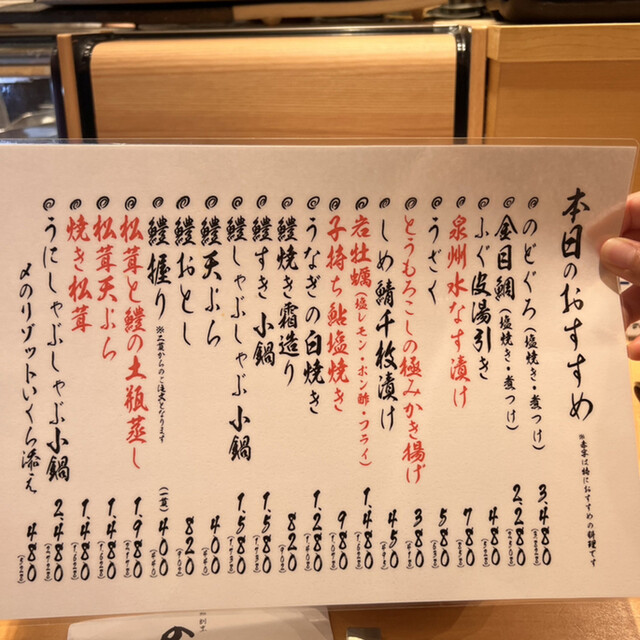 本日のおすすめ
※赤字は特におすすめの料理です
のどぐろ(塩焼き・煮つけ) 3.480
金目鯛(塩焼き・煮つけ) 2.280
ふぐ皮湯引き 480
泉州水なす漬け 780
うざく 580
とうもろこしの極みかき揚げ 380
しめ鯖千枚漬け 450
岩牡蠣(塩レモン・ポン酢・フライ) 1.480
子持ち鮎塩焼き 980
うなぎの白焼き 1.280
鱧焼き霜造り 820
鱧すき小鍋 1.580
鱧しゃぶしゃぶ小鍋 1.580
鱧天ぷら 400
鱧おとし 820
鱧握り ※二貫からのご注文となります (一貫) 400
松茸と鱧の土瓶蒸し 1.980
松茸天ぷら 1.480
焼き松茸 1.480
うにしゃぶしゃぶ小鍋 2.480
〆のリゾットいくら添え 480